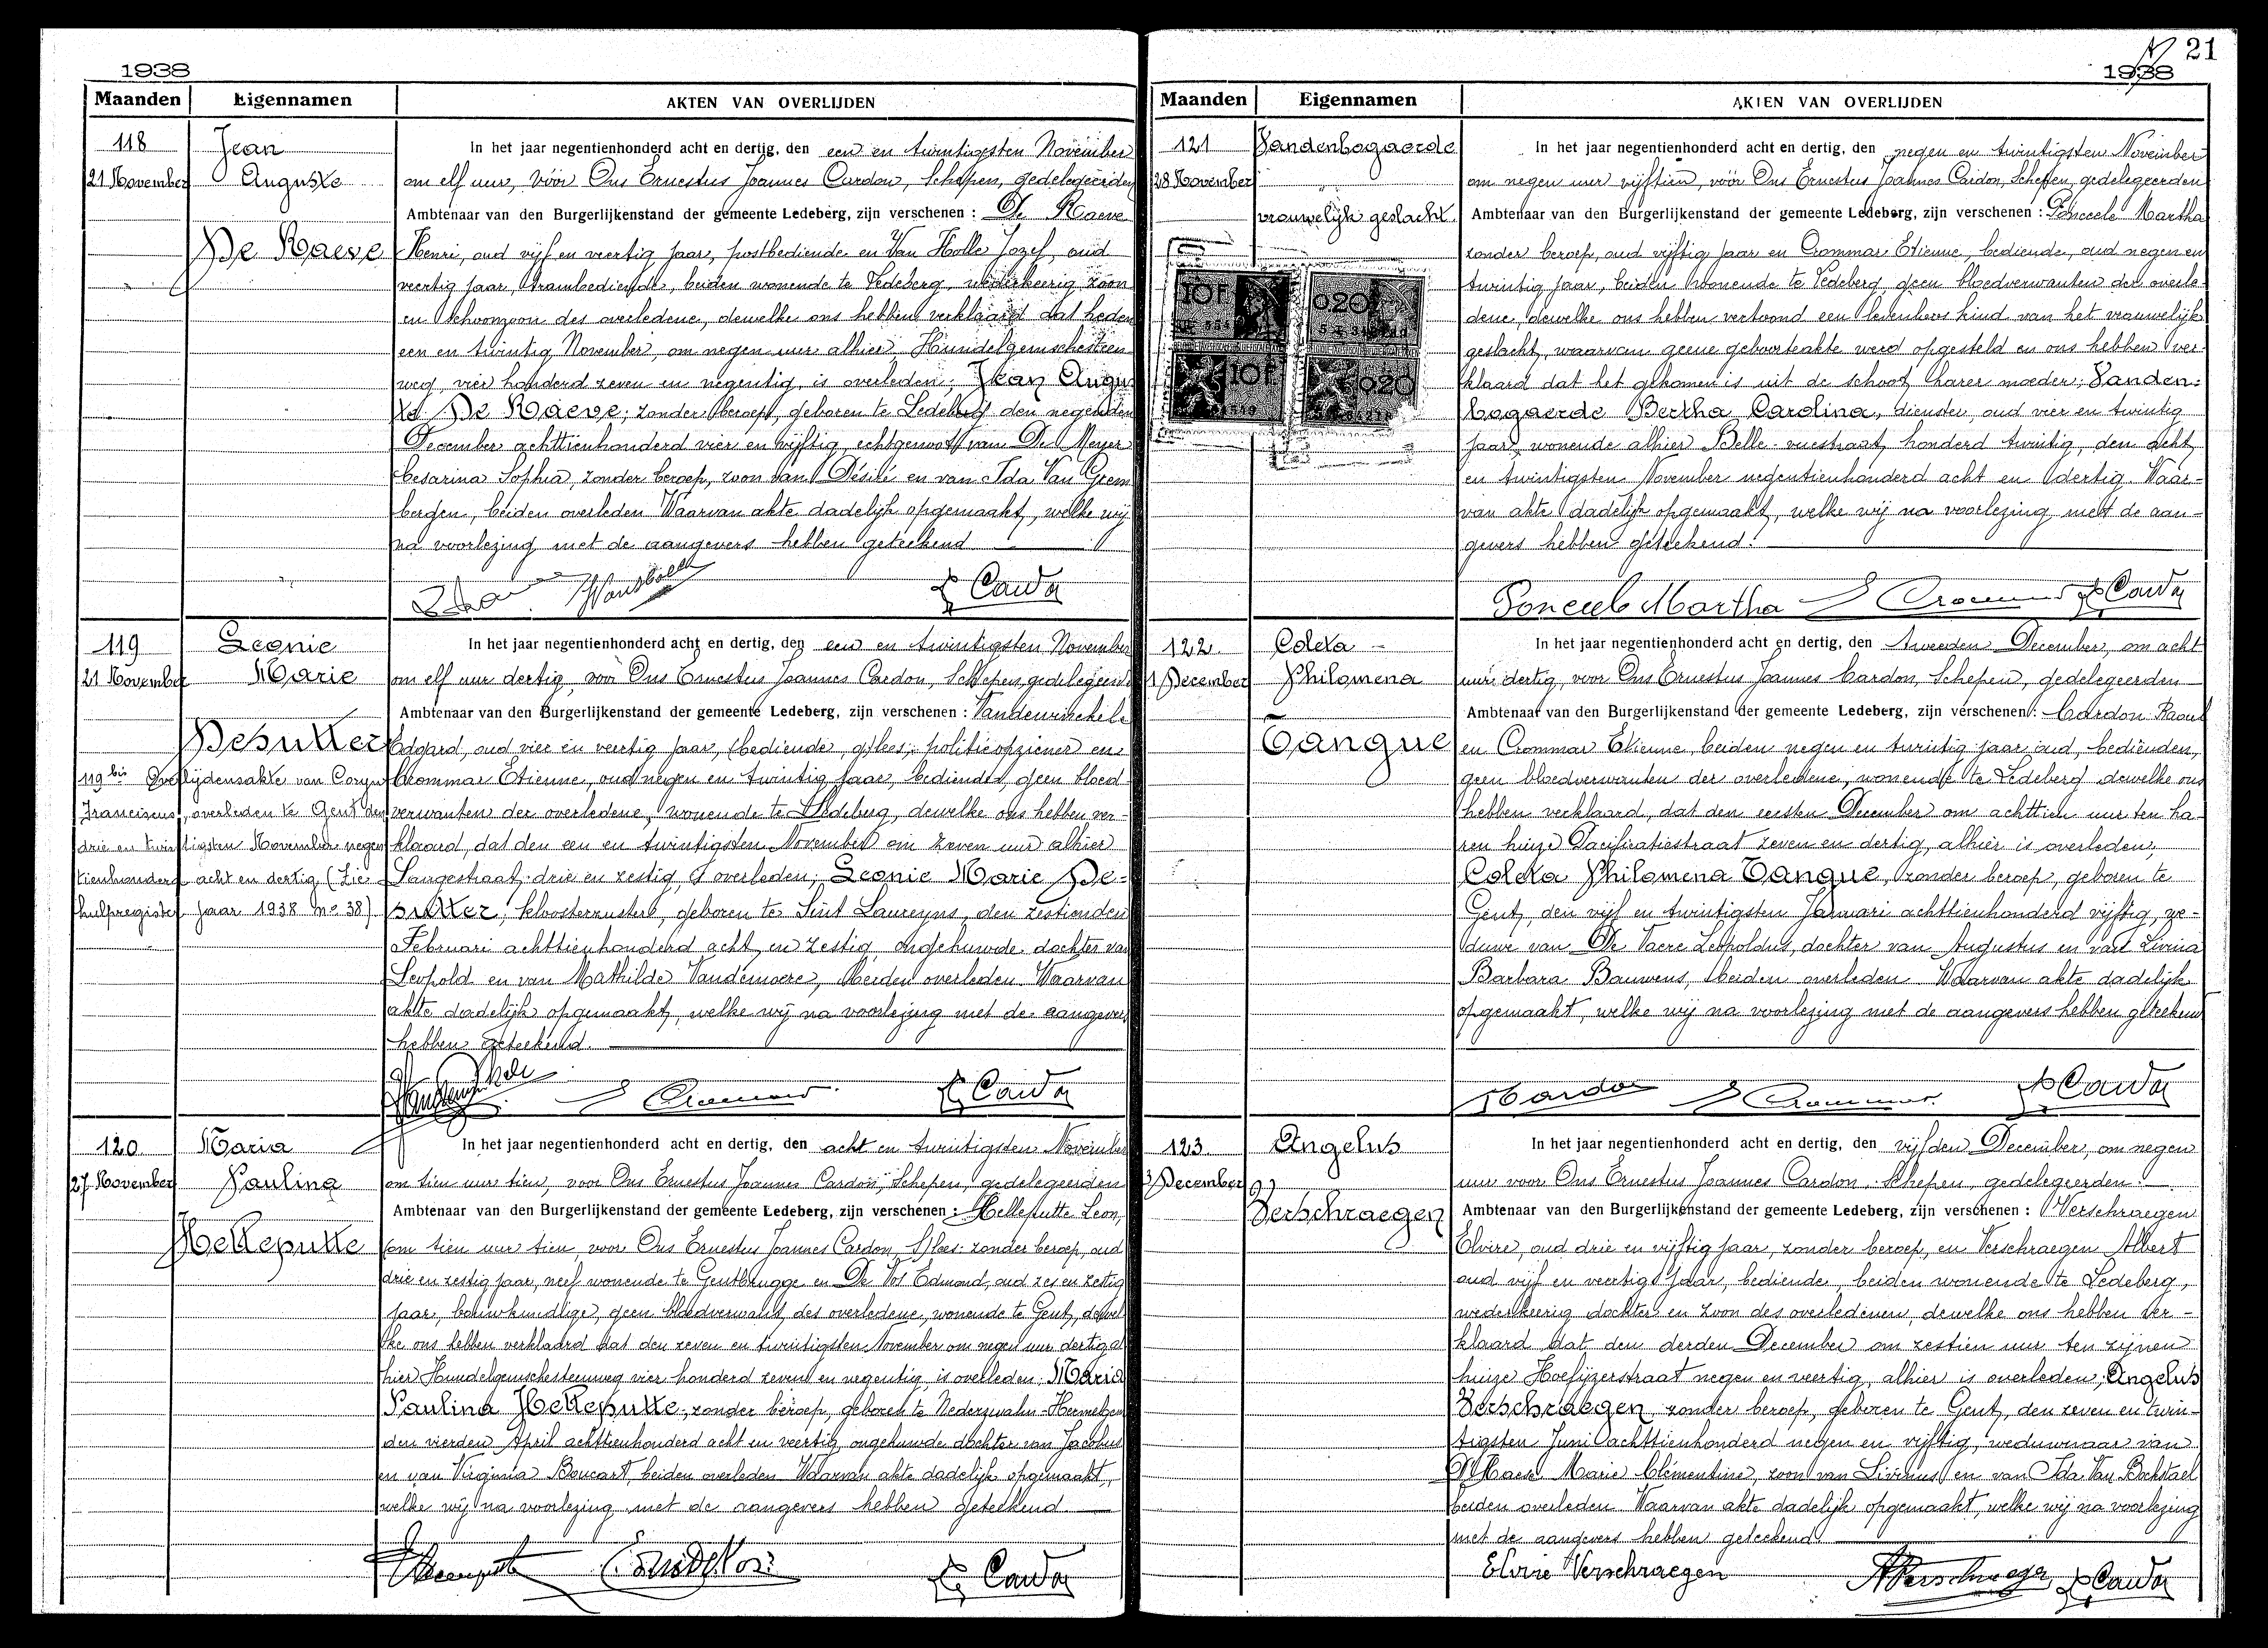 1938
Maanden Eigennamen AKTEN VAN OVERLIJDEN
118
21 November
Jean
Auguste
De Raeve
In het jaar negentienhonderd acht en dertig, den een en twintigsten November
om elf uur, vóór Ons Ernestus Joannes Cardon, Schepen, gedelegeerden
Ambtenaar van den Burgerlijkenstand der gemeente Ledeberg, zijn verschenen : De Raeve
Henri, oud vijf en veertig jaar, postbediende en Van Holle Jozef, oud
veertig jaar, trambediende, beiden wonende te Ledeberg, wederkeerig zoon
en schoonzoon des overledene, dewelke ons hebben verklaard dat heden
een en twintig November, om negen uur alhier, Hundelgemschesteen-
weg vier honderd zeven en negentig, is overleden; Jean Augu-
ste De Raeve; zonder beroep, geboren te Ledeberg den negenden
December achttienhonderd vier en vijftig, echtgenoot van De Meyer
Cesarina Sophia, zonder beroep, zoon van Désiré en van Ida Van Grem
bergen, beiden overleden. Waarvan akte dadelijk opgemaakt, welke wij
na voorlezing met de aangevers hebben geteekend
E. Cardon
119
21 November
Leonie
Marie
Desutter
119 bis Overlijdensakte van Coryn
Franciscus, overleden te Gent den
drie en twintigsten November negen
tienhonderd acht en dertig (Zie
hulpregister jaar 1938 No 38)
In het jaar negentienhonderd acht en dertig, den een en twintigsten November
om elf uur dertig, voor Ons Ernestus Joannes Cardon, Schepen, gedelegeerden
Ambtenaar van den Burgerlijkenstand der gemeente Ledeberg, zijn verschenen : Vandenwinckele
Edgard, oud vier en veertig jaar, bediende, g/lees; politieopziener en
Crommar Etienne, oud negen en twintig jaar, bediende, geen bloed-
verwanten der overledene, wonende te Ledeberg, dewelke ons hebben ver-
klaard, dat den een en twintigsten November om zeven uur alhier
Langestraat, drie en zestig, is overleden; Leonie Marie De-
sutter; kloosterzuster, geboren te Sint Laureyns, den zestienden
Februari achttienhonderd acht en zestig, ongehuwde dochter van
Leopold en van Mathilde Vandemoere, beiden overleden. Waarvan
akte dadelijk opgemaakt, welke wij na voorlezing met de aangevers
hebben geteekend.
E Crommar
E. Cardon
120
27 November
Maria
Paulina
Helleputte
In het jaar negentienhonderd acht en dertig, den acht en twintigsten November
om tien uur tien, voor Ons Ernestus Joannes Cardon, Schepen, gedelegeerden
Ambtenaar van den Burgerlijkenstand der gemeente Ledeberg, zijn verschenen : Helleputte Leon,
om tien uur tien, voor Ons Ernestus Joannes Cardon, S/lees: zonder beroep, oud
drie en zestig jaar, neef wonende te Gentbrugge en De Vos Edmond, oud zes en zestig
jaar, bouwkundige, geen bloedverwant des overledene, wonende te Gent, dewel
ke ons hebben verklaard dat den zeven en twintigsten November om negen uur dertig al
hier Hundelgemschesteenweg vier honderd zeven en negentig, is overleden: Maria
Paulina Helleputte, zonder beroep, geboren te Nederzwalm-Hermelgem
den vierden April achttienhonderd acht en veertig, ongehuwde dochter van Jacobus
en van Virginia Boucart, beiden overleden. Waarvan akte dadelijk opgemaakt,
welke wij na voorlezing met de aangevers hebben geteekend.
E. Cardon
21
1938
Maanden Eigennamen AKTEN VAN OVERLIJDEN
121
28 November
Vandenbogaerde
vrouwelijk geslacht
10 F
0.20
10 F
0.20
In het jaar negentienhonderd acht en dertig, den negen en twintigsten November
om negen uur vijftien, vóór Ons Ernestus Joannes Cardon, Schepen, gedelegeerden
Ambtenaar van den Burgerlijkenstand der gemeente Ledeberg, zijn verschenen : Poncele Martha
zonder beroep, oud vijftig jaar en Crommar Etienne, bediende, oud negen en
twintig jaar, beiden wonende te Ledeberg, geen bloedverwanten der overle-
dene, dewelke ons hebben vertoond een levenloos kind van het vrouwelijk
geslacht, waarvan geene geboorteakte werd opgesteld en ons hebben ver-
klaard dat het gekomen is uit de schoot harer moeder; Vanden-
bogaerde Bertha Carolina, dienster, oud vier en twintig
jaar, wonende alhier Belle-vuestraat, honderd twintig, den acht
en twintigsten November negentienhonderd acht en dertig. Waar-
van akte dadelijk opgemaakt, welke wij na voorlezing met de aan-
gevers hebben geteekend.
Poncele Martha E Crommar E. Cardon
122
1 December
Coleta
Philomena
Tanque
In het jaar negentienhonderd acht en dertig, den tweeden December, om acht
uur dertig, voor Ons Ernestus Joannes Cardon, Schepen, gedelegeerden
Ambtenaar van den Burgerlijkenstand der gemeente Ledeberg, zijn verschenen : Cardon Raoul
en Crommar Etienne, beiden negen en twintig jaar oud, bedienden,
geen bloedverwanten der overledene, wonende te Ledeberg dewelke ons
hebben verklaard, dat den eersten December om achttien uur ten ha-
ren huize Pacificatiestraat zeven en dertig, alhier is overleden,
Coleta Philomena Tanque, zonder beroep, geboren te
Gent, den vijf en twintigsten Januari achttienhonderd vijftig, we-
duwe van De Vaere Leopoldus, dochter van Augustus en van Livina
Barbara Bauwens, beiden overleden. Waarvan akte dadelijk
opgemaakt, welke wij na voorlezing met de aangevers hebben geteekend
R Cardon E Crommar. E. Cardon
123
3 December
Angelus
Verschraegen
In het jaar negentienhonderd acht en dertig, den vijfden December, om negen
uur voor Ons Ernestus Joannes Cardon, Schepen, gedelegeerden
Ambtenaar van den Burgerlijkenstand der gemeente Ledeberg, zijn verschenen : Verschraegen
Elvire, oud drie en vijftig jaar, zonder beroep, en Verschraegen Albert
oud vijf en veertig jaar, bediende, beiden wonende te Ledeberg,
wederkeerig dochter en zoon des overledenen, dewelke ons hebben ver-
klaard dat den derden December om zestien uur ten zijnen
huize Hoefijzerstraat negen en veertig, alhier is overleden; Angelus
Verschraegen, zonder beroep, geboren te Gent, den zeven en twin-
tigsten Juni achttienhonderd negen en vijftig, weduwnaar van
D'Haese Marie Clémentine, zoon van Livinus en van Ida Van Bockstael
beiden overleden. Waarvan akte dadelijk opgemaakt, welke wij na voorlezing
met de aangevers hebben geteekend.
Elvire Verschraegen A Verschraegen E. Cardon